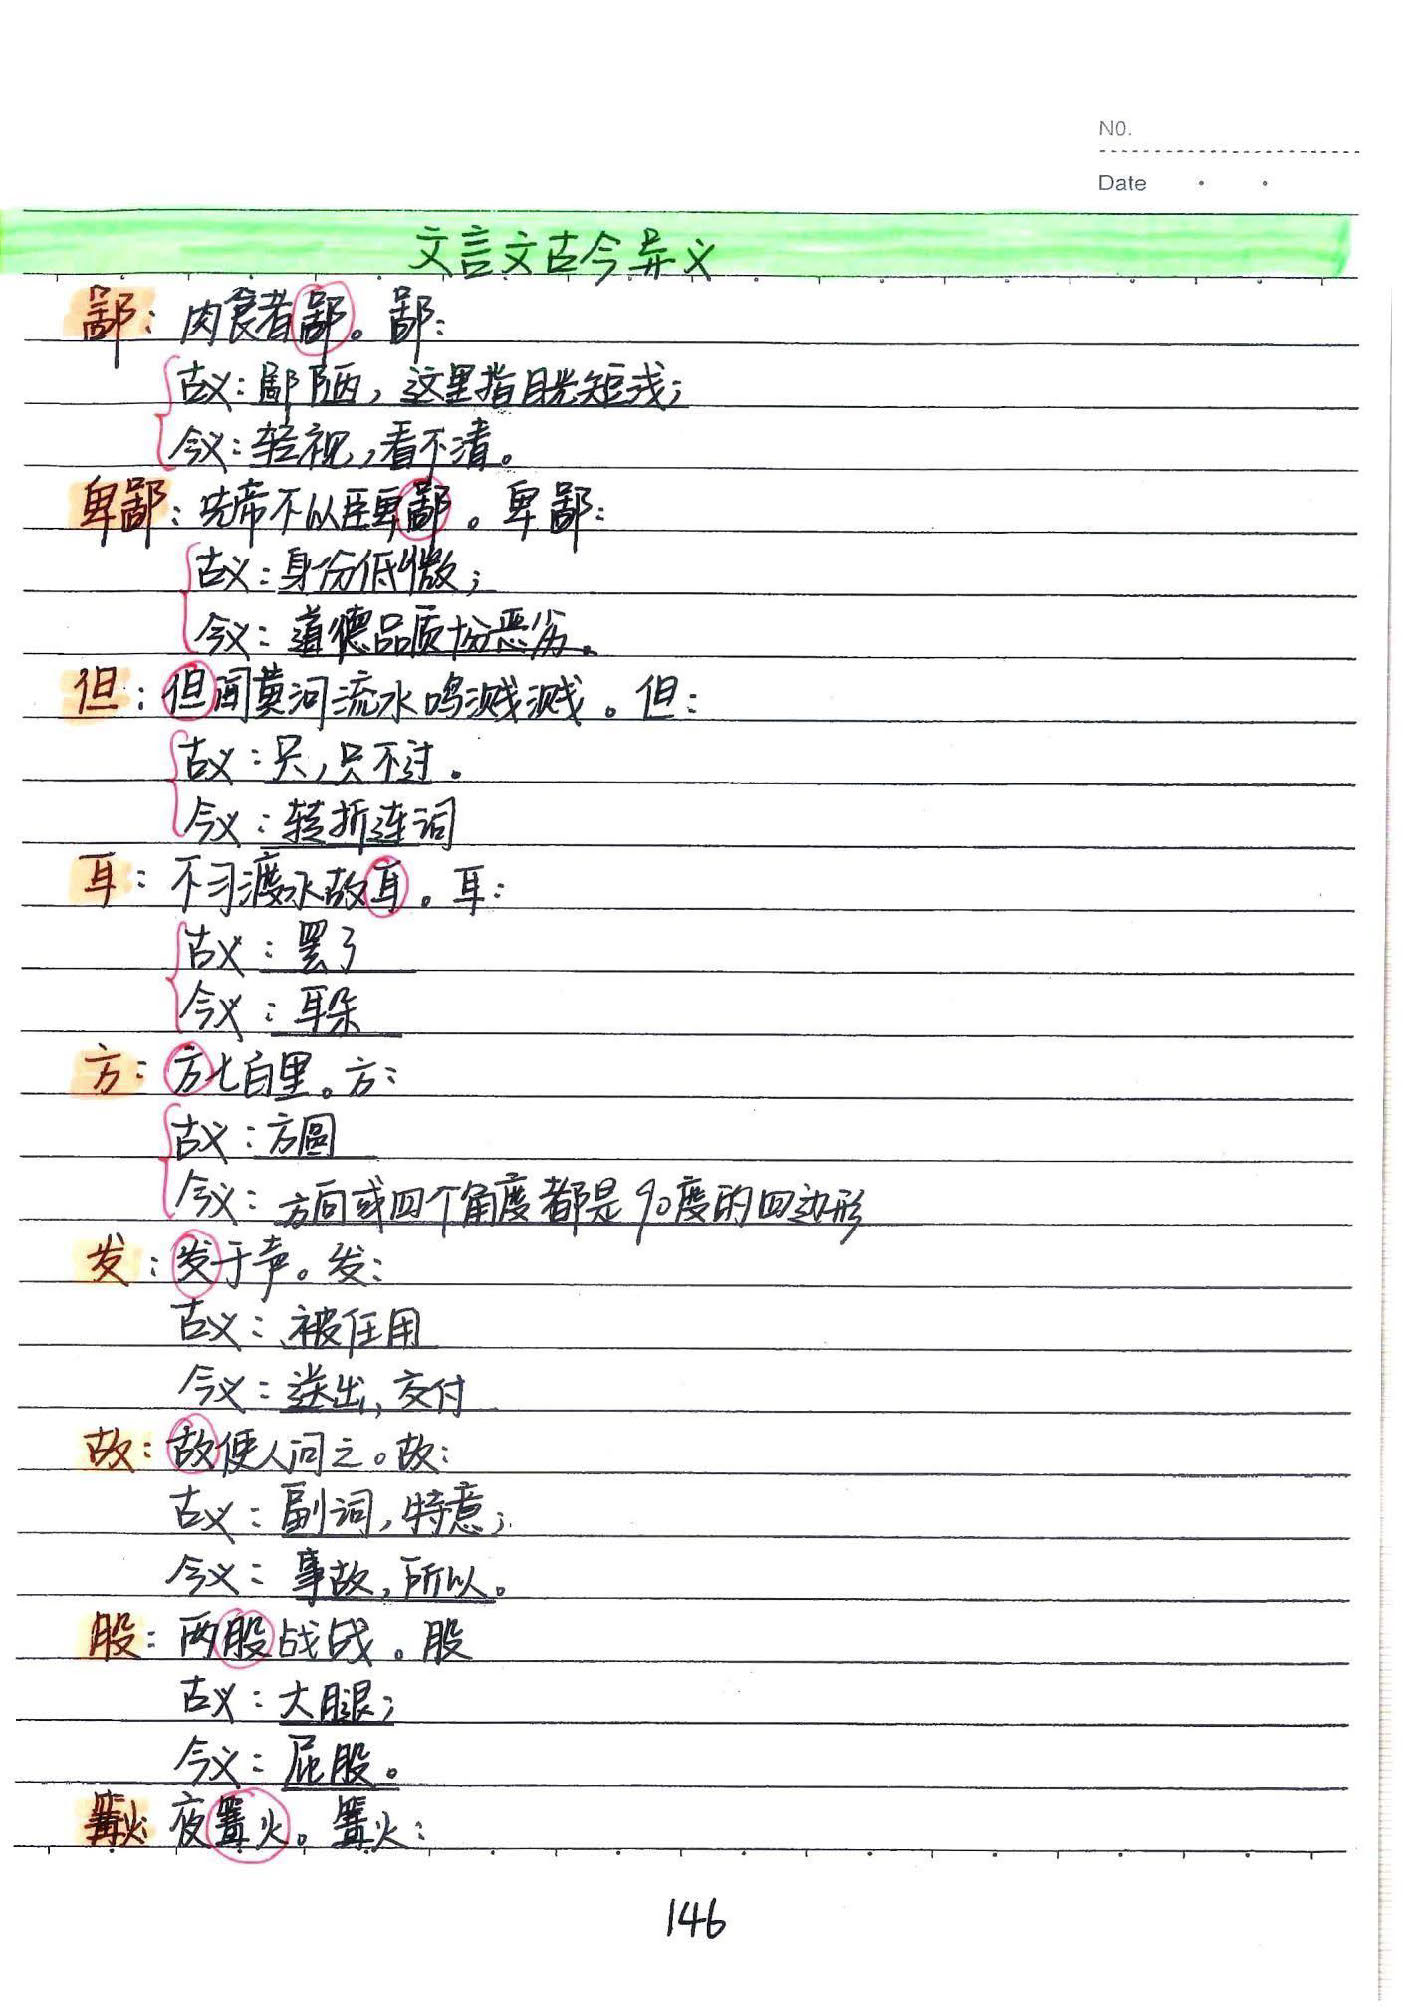 NO.
Date
文言文古今异义
鄙：肉食者鄙。鄙：
古义：鄙陋，这里指目光短浅；
今义：轻视，看不清。
卑鄙：先帝不以臣卑鄙。卑鄙：
古义：身份低微；
今义：道德品质恶劣。
但：但闻黄河流水鸣溅溅。但：
古义：只，只不过。
今义：转折连词
耳：不习渡水故耳。耳：
古义：罢了
今义：耳朵
方：方七百里。方：
古义：方圆
今义：方向或四个角度都是90度的四边形
发：发于声。发：
古义：被任用
今义：送出，交付
故：故使人问之。故：
古义：副词，特意；
今义：事故，所以。
股：两股战战。股
古义：大腿；
今义：屁股。
篝火：夜篝火。篝火：
146